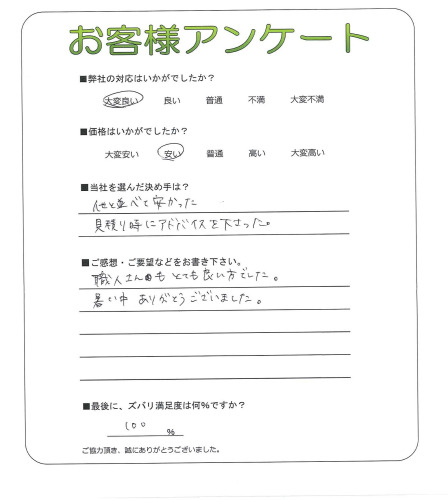 お客様アンケート
■弊社の対応はいかがでしたか？
大変良い 良い 普通 不満 大変不満
■価格はいかがでしたか？
大変安い 安い 普通 高い 大変高い
■当社を選んだ決め手は？
他と並べて安かった
見積り時にアドバイスを下さった。
■ご感想・ご要望などをお書き下さい。
職人さんも とても良い方でした。
暑い中 ありがとうございました。
■最後に、ズバリ満足度は何%ですか？
100 %
ご協力頂き、誠にありがとうございました。